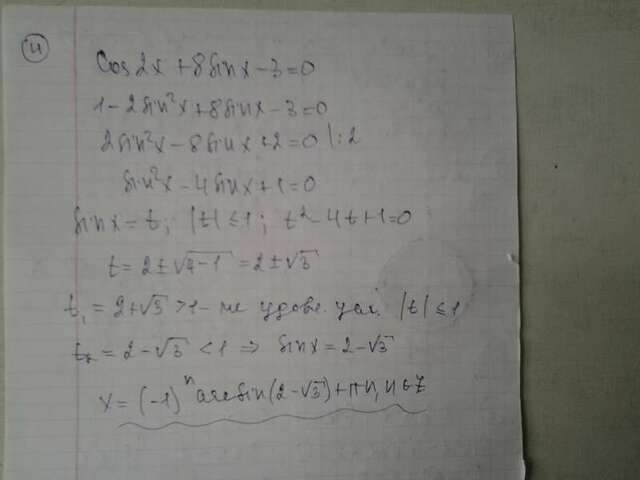 4
cos2x + 8sinx - 3 = 0
1 - 2sin²x + 8sinx - 3 = 0
2sin²x - 8sinx + 2 = 0 |:2
sin²x - 4sinx + 1 = 0
sinx = t; |t| ≤ 1; t² - 4t + 1 = 0
t = 2 ± √4-1 = 2 ± √3
t₁ = 2+√3 > 1 - не удовл. усл. |t| ≤ 1
t₂ = 2 - √3 < 1 ⇒ sinx = 2 - √3
x = (-1)ⁿ arcsin(2 - √3) + πn, n ∈ Z